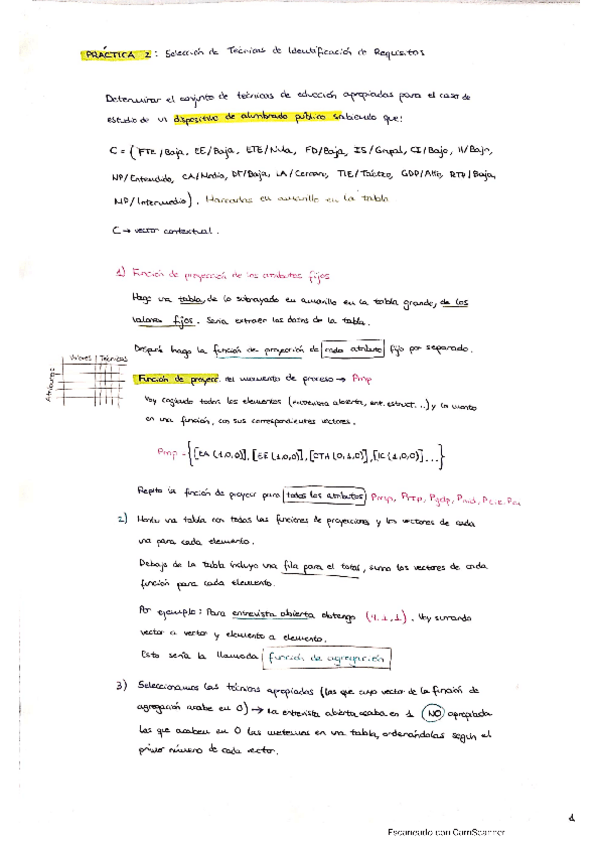 PRÁCTICA 2: Selección de Técnicas de Identificación de Requisitos
Determinar el conjunto de técnicas de educción apropiadas para el caso de
estudio de un dispositivo de alumbrado público sabiendo que:
C = { FTE/Baja, EE/Baja, ETE/Nula, FD/Baja, IS/Grupal, CI/Bajo, II/Bajo,
NP/Entendido, CA/Medio, DT/Baja, LA/Cercano, TIE/Táctico, GDP/Alto, RTD/Baja,
MP/Intermedio}. Marcadas en amarillo en la tabla
C → vector contextual.
1) Función de proyección de los atributos fijos
Hago una tabla, de lo subrayado en amarillo en la tabla grande, de los
valores fijos. Sería extraer los datos de la tabla.
Después hago la función de proyección de cada atributo fijo por separado.
Valores Técnicas
Atributos
Función de proyecc. del momento de proceso → Pmp
Voy cogiendo todos los elementos (entrevista abierta, ent. estruct...) y lo meto
en una función, con sus correspondientes vectores.
Pmp = {[EA (1,0,0)], [EE (1,0,0)], [CTA (0,1,0)], [IC (1,0,0)]...}
Repito la función de proyecc para todos los atributos
2) Hacer una tabla con todas las funciones de proyecciones y los vectores de cada
una para cada elemento.
Debajo de la tabla incluyo una fila para el total, sumo los vectores de cada
función para cada elemento.
Por ejemplo: Para entrevista abierta obtengo (4,1,1). Voy sumando
vector a vector y elemento a elemento.
Esto sería la llamada función de agregación
3) Seleccionamos las técnicas apropiadas (las que cuyo vector de la función de
agregación acabe en 0) → La entrevista abierta acaba en 1 NO apropiada
Las que acaben en 0 las metemos en una tabla, ordenándolas según el
primer número de cada vector.
Escaneado con CamScanner